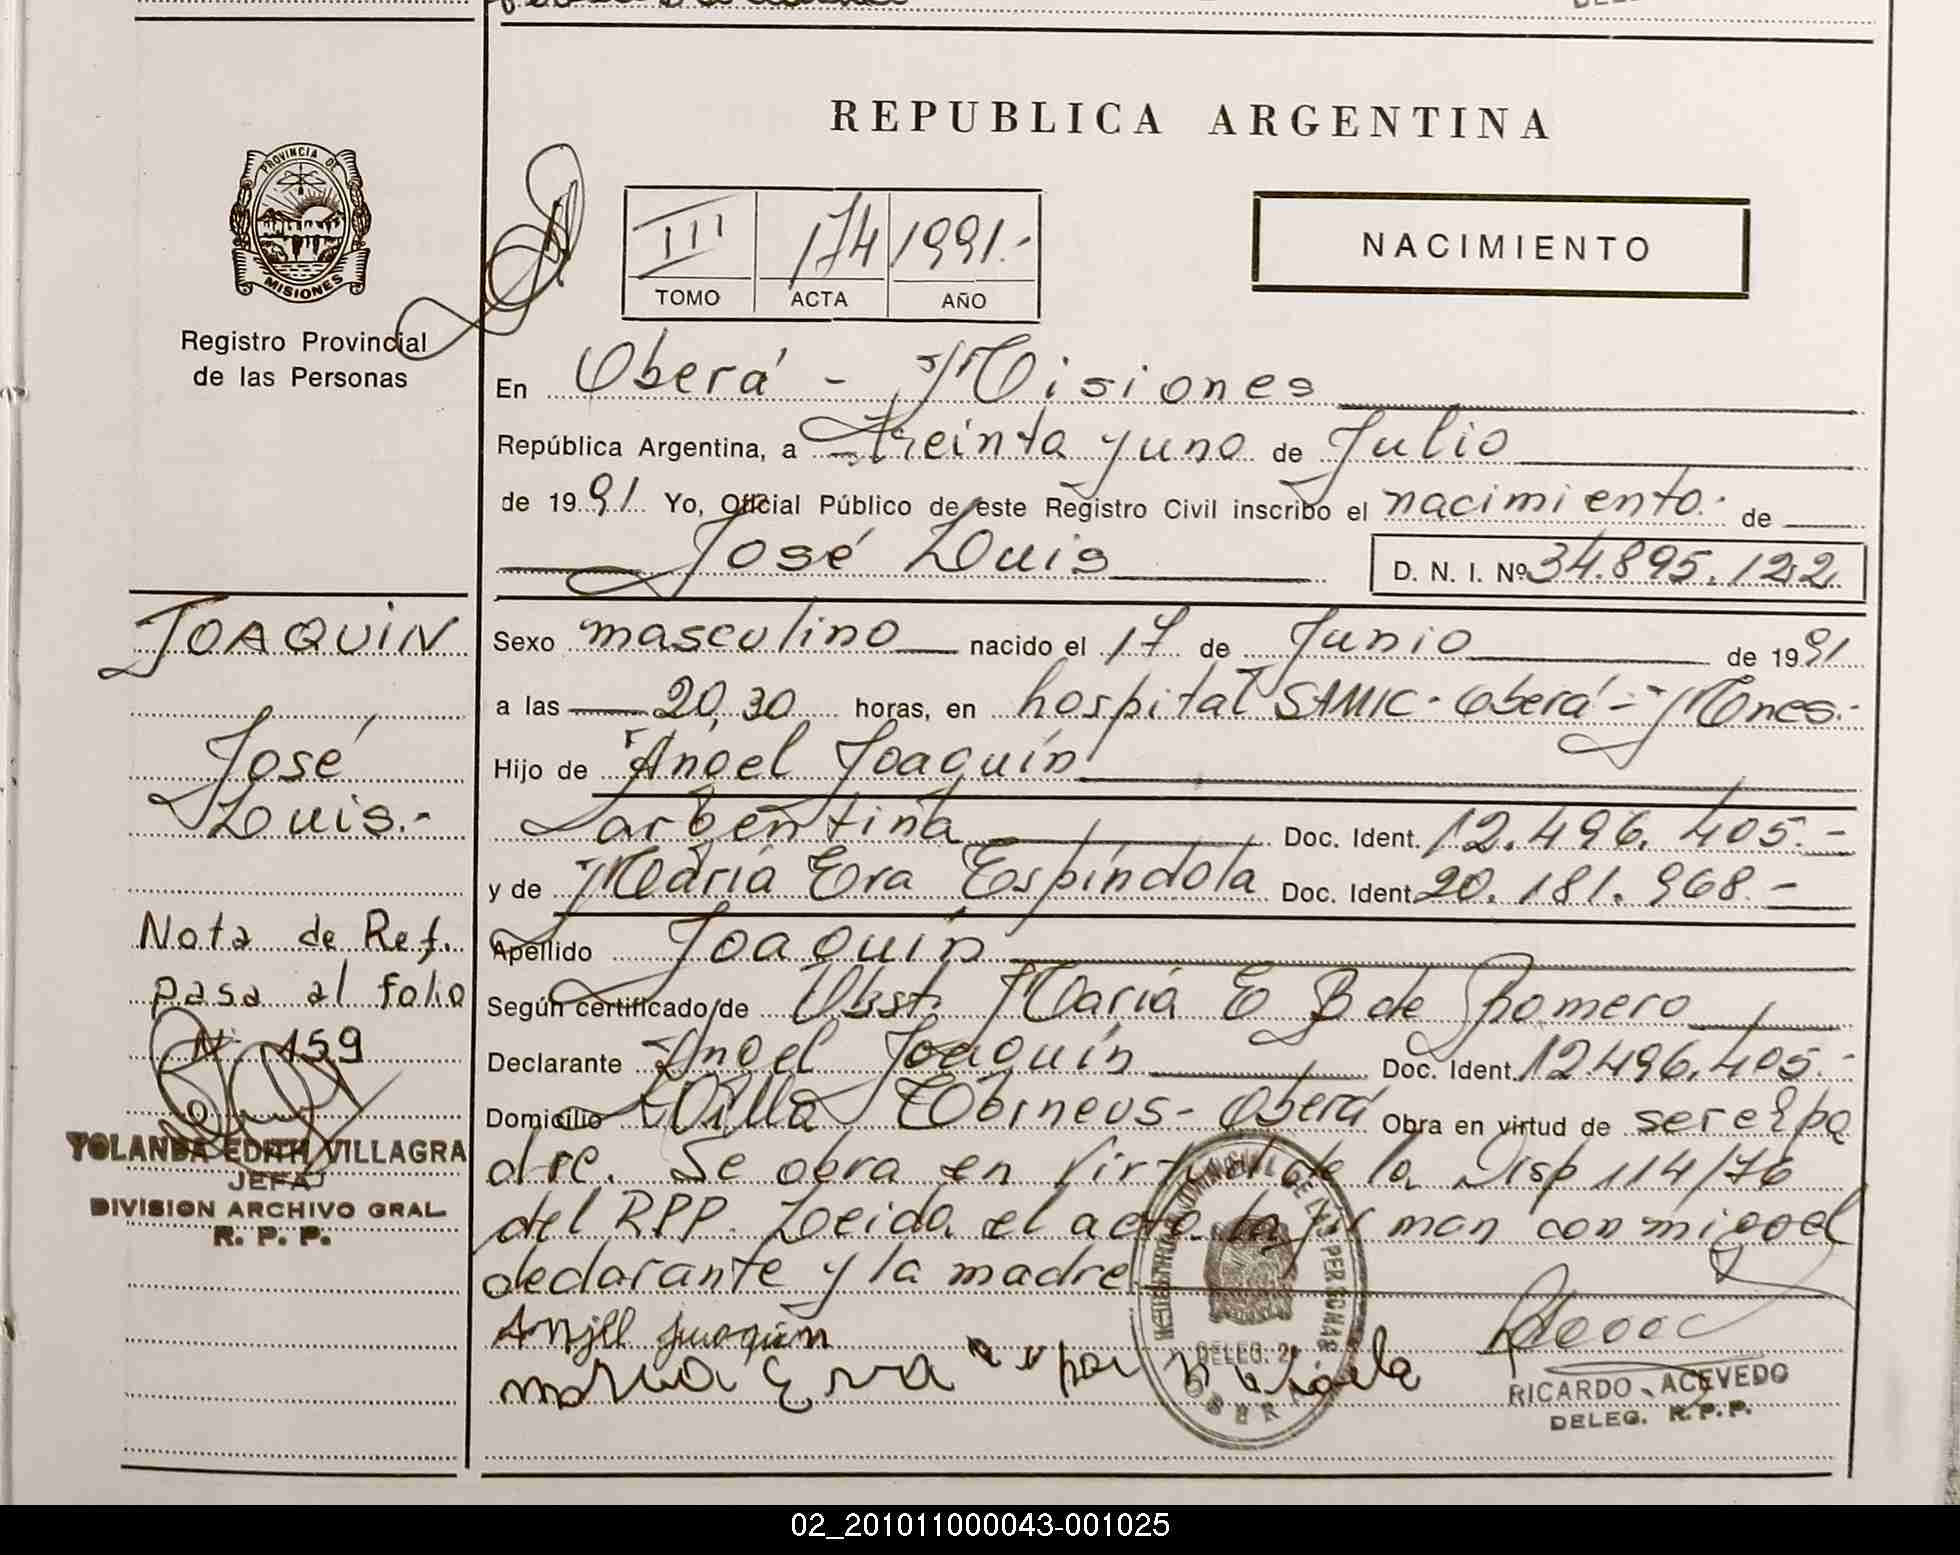 REPUBLICA ARGENTINA
PROVINCIA DE
MISIONES
Registro Provincial
de las Personas
III 174 1991.-
TOMO ACTA AÑO
NACIMIENTO
En Oberá - Misiones
República Argentina, a Treinta y uno de Julio
de 1991 Yo, Oficial Público de este Registro Civil inscribo el nacimiento.- de
José Luis D. N. I. Nº 34.895.122
JOAQUIN
José
Luis.-
Nota de Ref.
pasa al folio
Nº 159
YOLANDA EDITH VILLAGRA
JEFA
DIVISION ARCHIVO GRAL.
R. P. P.
Sexo masculino nacido el 17 de Junio de 1991
a las 20,30 horas, en hospital SAMIC - Oberá - Mnes.-
Hijo de Angel Joaquín
argentina Doc. Ident. 12.496.405.-
y de María Eva Espíndola Doc. Ident. 20.181.968.-
Apellido Joaquín
Según certificado/de Obst. María E B de Romero
Declarante Angel Joaquín Doc. Ident. 12.496.405.-
Domicilio Villa Oberá Obra en virtud de ser el pa
dre. Se obra en virtud de la Disp 114/76
del RPP. Leida el acta la firman conmigo el
declarante y la madre
Anjel Juaquin
maria Eva
DELEG. 2
OBERA
RICARDO ACEVEDO
DELEG. R.P.P.
02_201011000043-001025